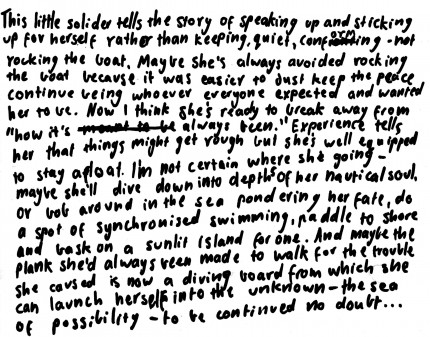 This little solider tells the story of speaking up and sticking
up for herself rather than keeping, quiet, conforming - not
rocking the boat. Maybe she's always avoided rocking
the boat because it was easier to just keep the peace
continue being whoever everyone expected and wanted
her to be. Now I think she's ready to break away from
"how it's meant to be always been." Experience tells
her that things might get rough but she's well equipped
to stay afloat. I'm not certain where she going -
maybe she'll dive down into depths of her nautical soul.
or bob around in the sea pondering her fate, do
a spot of synchronised swimming, paddle to shore
and bask on a sunlit island for one. And maybe the
plank she'd always been made to walk for the trouble
she caused is now a diving board from which she
can launch herself into the unknown - the sea
of possibility - to be continued no doubt...